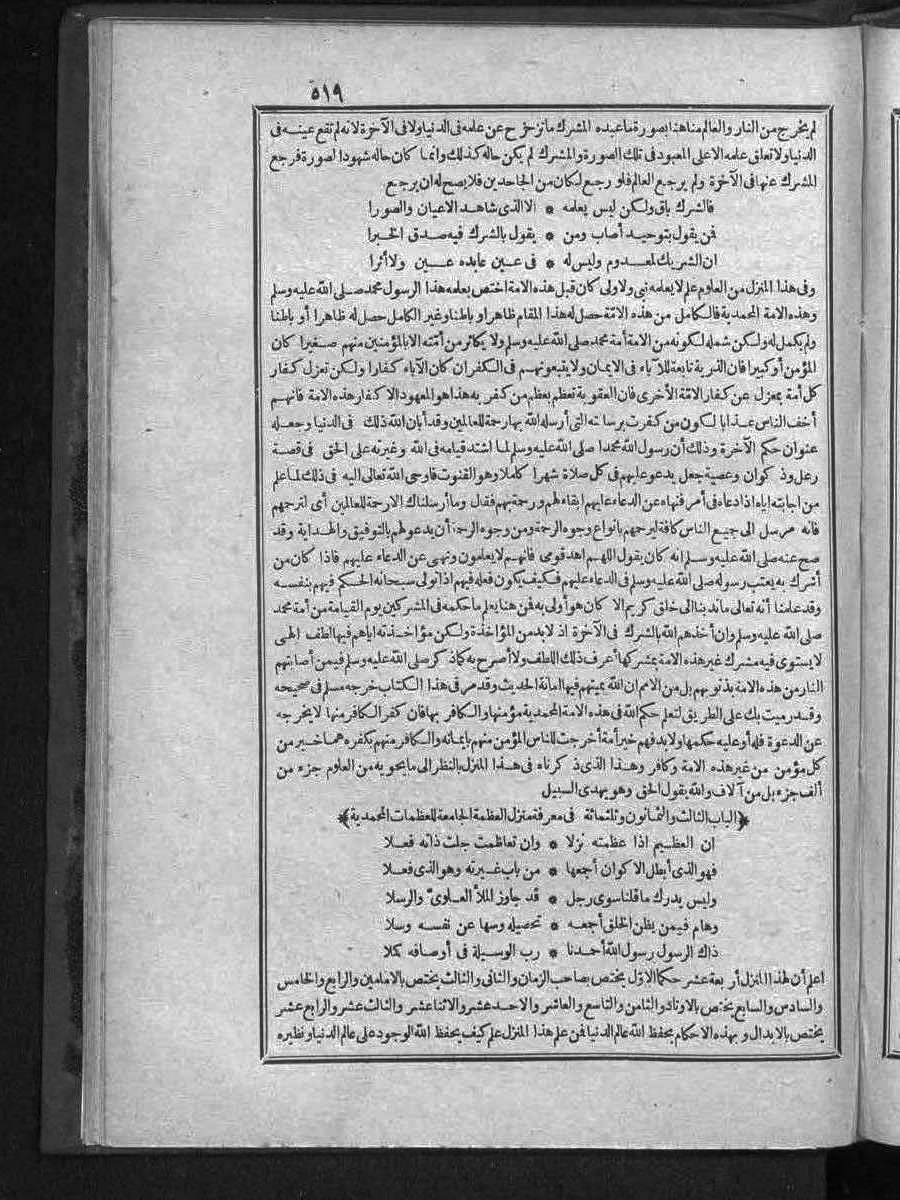 ٥١٩
لم يخرج من النار والعالم هنا هذا بصورة ما عبده المشرك ماتزحزح عن علمه فى الدنيا ولا فى الآخرة لانه لم تقع عينه فى
الدنيا ولا تعلق علمه الاعلى المعبود فى تلك الصورة والمشرك لم يكن حاله كذلك وانما كان حاله شهود الصورة فرجع
المشرك عنها فى الآخرة ولم يرجع العالم فلو رجع لكان من الجاحدين فلا يصح له ان يرجع
فالشرك باق ولكن ليس يعلمه * الا الذى شاهد الاعيان والصورا
فمن يقول بتوحيد أصاب ومن * يقول بالشرك فيه صدق الخبرا
ان الشريك لمعدوم وليس له * فى عين عابده عين ولا أثرا
وفى هذا المنزل من العلوم علم لا يعلمه نبى ولا ولى كان قبل هذه الامة اختص بعلمه هذا الرسول محمد صلى الله عليه وسلم
وهذه الامة المحمدية فالكامل من هذه الامّة حصل له هذا المقام ظاهرا وباطنا وغير الكامل حصل له ظاهرا أو باطنا
ولم يكمل له ولكن شمله لكونه من الامة أمة محمد صلى الله عليه وسلم ولا يكاثر من أمّته الا بالمؤمنين منهم صغيرا كان
المؤمن أو كبيرا فان الذرية تابعة للآباء فى الايمان ولا يتبعونهم فى الكفر ان كان الآباء كفارا ولكن تعزل كفار
كل أمة بمعزل عن كفار الامّة الأخرى فان العقوبة تعظم بعظم من كفر به هذا هو المعهود الا كفار هذه الامة فانهم
أخف الناس عذابا لكون من كفرت برسالته التى أرسله الله بها رحمة للعالمين وقد أبان الله ذلك فى الدنيا وجعله
عنوان حكم الآخرة وذلك أن رسول الله محمدا صلى الله عليه وسلم لما اشتد قيامه فى الله وغيرته على الحق فى قصة
رعل وذكوان وعصية جعل يدعو عليهم فى كل صلاة شهرا كاملا وهو القنوت فاوحى الله تعالى اليه فى ذلك لما علم
من اجابته اياه اذا دعاه فى أمر فنهاه عن الدعاء عليهم ابقاء لهم ورحمة بهم فقال وما أرسلناك الا رحمة للعالمين أى لترحمهم
فانه مرسل الى جميع الناس كافة ليرحمهم بانواع وجوه الرحمة ومن وجوه الرحمة أن يدعو لهم بالتوفيق والهداية وقد
صح عنه صلى الله عليه وسلم انه كان يقول اللهم اهد قومى فانهم لا يعلمون ونهى عن الدعاء عليهم فاذا كان من
أشرك به يعتب رسوله صلى الله عليه وسلم فى الدعاء عليهم فكيف يكون فعله فيهم اذا تولى سبحانه الحكم فيهم بنفسه
وقد علمنا أنه تعالى ما ندبنا الى خلق كريم الا كان هو أولى به فمن هنا يعلم ما حكمه فى المشركين يوم القيامة من أمة محمد
صلى الله عليه وسلم وان أخذهم الله بالشرك فى الآخرة اذ لا بد من المؤاخذة ولكن مؤاخذته اياهم فيها لطف الهى
لا يستوى فيه مشرك غير هذه الامة بمشركها أعرف ذلك اللطف ولا أصرح به كما ذكر صلى الله عليه وسلم فيمن أصابتهم
النار من هذه الامة بذنوبهم بل من الامم ان الله يميتهم فيها اماتة الحديث وقد مر فى هذا الكتاب خرجه مسلم فى صحيحه
وقد رميت بك على الطريق لتعلم حكم الله فى هذه الامة المحمدية مؤمنها والكافر بها فان كفر الكافر منها لا يخرجه
عن الدعوة فله أو عليه حكمها ولا بد فهم خير أمة أخرجت للناس المؤمن منهم بايمانه والكافر منهم بكفره هما خير من
كل مؤمن من غير هذه الامة وكافر وهذا الذى ذكرناه فى هذا المنزل بالنظر الى ما يحويه من العلوم جزء من
ألف جزء بل من آلاف والله يقول الحق وهو يهدى السبيل
﴿الباب الثالث والثمانون وثلثمائة فى معرفة منزل العظمة الجامعة للعظمات المحمدية﴾
ان العظيم اذا عظمته نزلا * وان تعاظمت جلت ذاته فعلا
فهو الذى أبطل الاكوان أجمعها * من باب غيرته وهو الذى فعلا
وليس يدرك ما قلنا سوى رجل * قد جاوز الملأ العلوىّ والرسلا
وهام فيمن يظن الخلق أجمعه * تحصيله وسها عن نفسه وسلا
ذاك الرسول رسول الله أحمدنا * رب الوسيلة فى أوصافه كملا
اعلم أن لهذا المنزل أربعة عشر حكما الاوّل يختص بصاحب الزمان والثانى والثالث يختص بالامامين والرابع والخامس
والسادس والسابع يختص بالاوتاد والثامن والتاسع والعاشر والاحد عشر والاثنا عشر والثالث عشر والرابع عشر
يختص بالابدال وبهذه الاحكام يحفظ الله عالم الدنيا فمن علم هذا المنزل علم كيف يحفظ الله الوجود على عالم الدنيا ونظيره